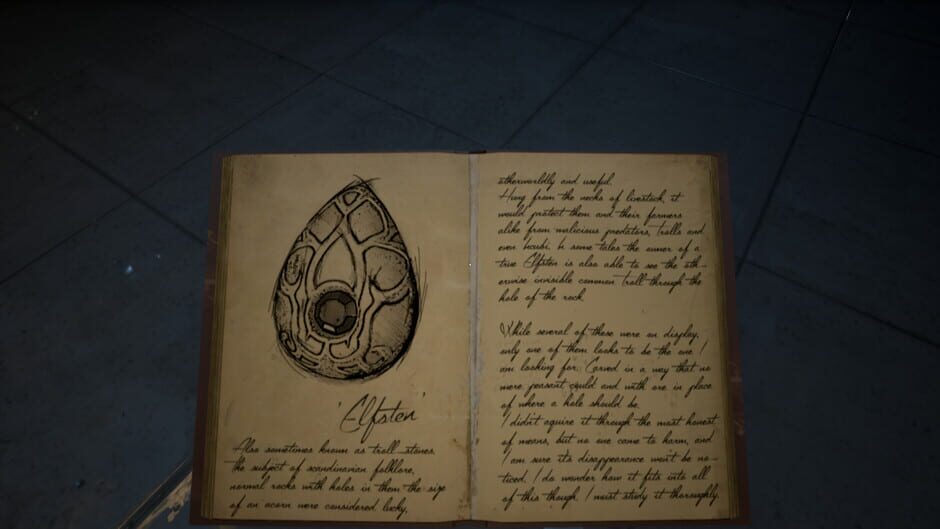 'Elfsten'
Also sometimes known as troll-stones,
the subject of scandinavian folklore,
normal rocks with holes in them the size
of an acorn were considered lucky,
otherworldly and useful.
Hung from the necks of livestock, it
would protect them and their farmers
alike from malicious predators, trolls and
even Incubi. In some tales the owner of a
true Elfsten is also able to see the oth-
erwise invisible common troll through the
hole of the rock.
While several of these were on display,
only one of them looks to be the one I
am looking for. Carved in a way that no
mere peasant could and with ore in place
of where a hole should be.
I didn't aquire it through the most honest
of means, but no one came to harm, and
I am sure its disappearance won't be no-
ticed. I do wonder how it fits into all
of this though. I must study it thoroughly.